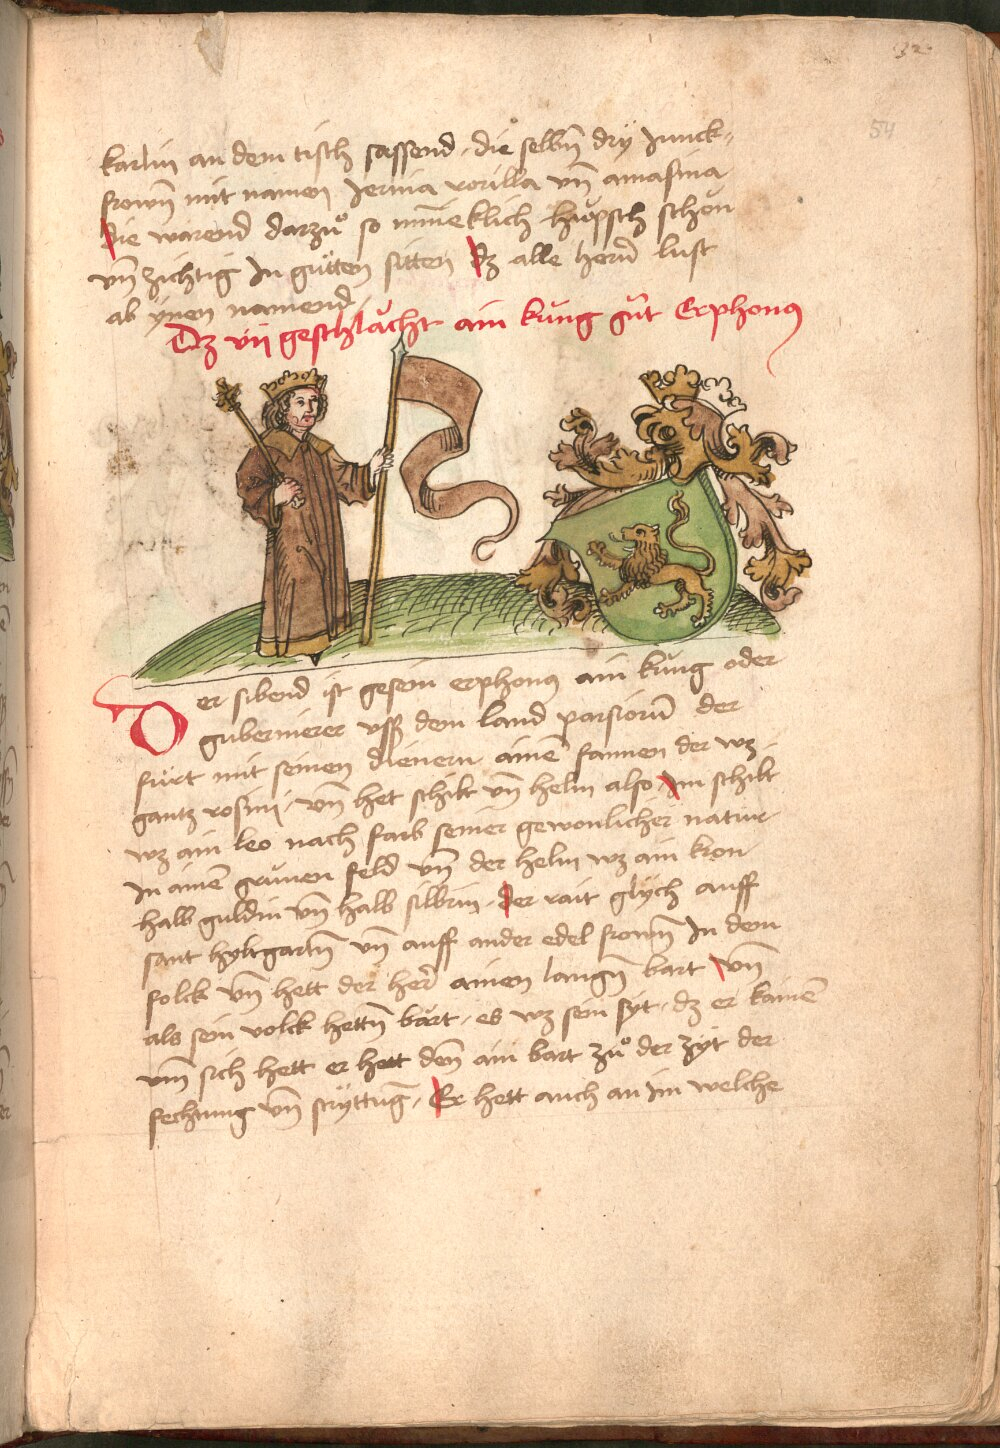 32.
54
karlin an dem tisch sassend / die selbn̄ dry Junck-
frown̄ mit namen Jerinia vorilla vn̄ amasina
die warend darzuͦ so mineklich hüpsch schön
vn̄ zichtig In guͤtten sitten dz alle hern̄ lust
ab ynen namend /
Dz vij geschlächt ain küng hiͤt Erphonꝰ
Der sibend ist gesein erphonꝰ ain küng oder
gubernierer vsß dem land parsiorū der
fürt mit seinen dienern ainē fannen der wz
gantz rosini / vn̄ het schilt vn̄ helm also / Im schilt
wz ain leo nach farb seiner gewonlicher natur
In ainē grünen feld vn̄ der helm wz ain kron
halb guldin vn̄ halb silbrin / der rait glych auff
sant hyltgartn̄ vn̄ auff ander edel frown̄ In dem
folck vn̄ hett der her̄ ainen langn̄ bart vn̄
als sein volck hettn̄ bärt / es wz sein syt / dz er kainē
vm̄ sich hett er hett den̄ ain bart zuͦ der zyt der
fechtung vn̄ stryttuḡ / Er hett auch an Im welche